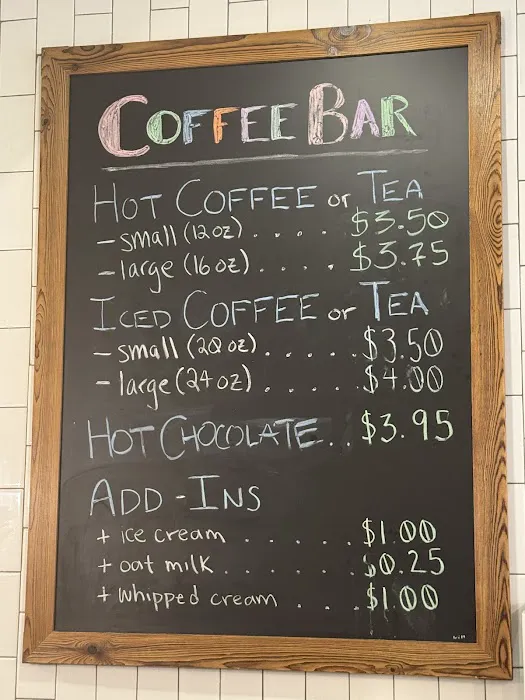 COFFEE BAR
HOT COFFEE or TEA
- small (12 oz) . . . . $3.50
- large (16 oz) . . . . $3.75
ICED COFFEE or TEA
- small (20 oz) . . . . . $3.50
- large (24 oz) . . . . . $4.00
HOT CHOCOLATE . . $3.95
ADD-INS
+ ice cream . . . . . $1.00
+ oat milk . . . . . . $0.25
+ whipped cream . . . $1.00